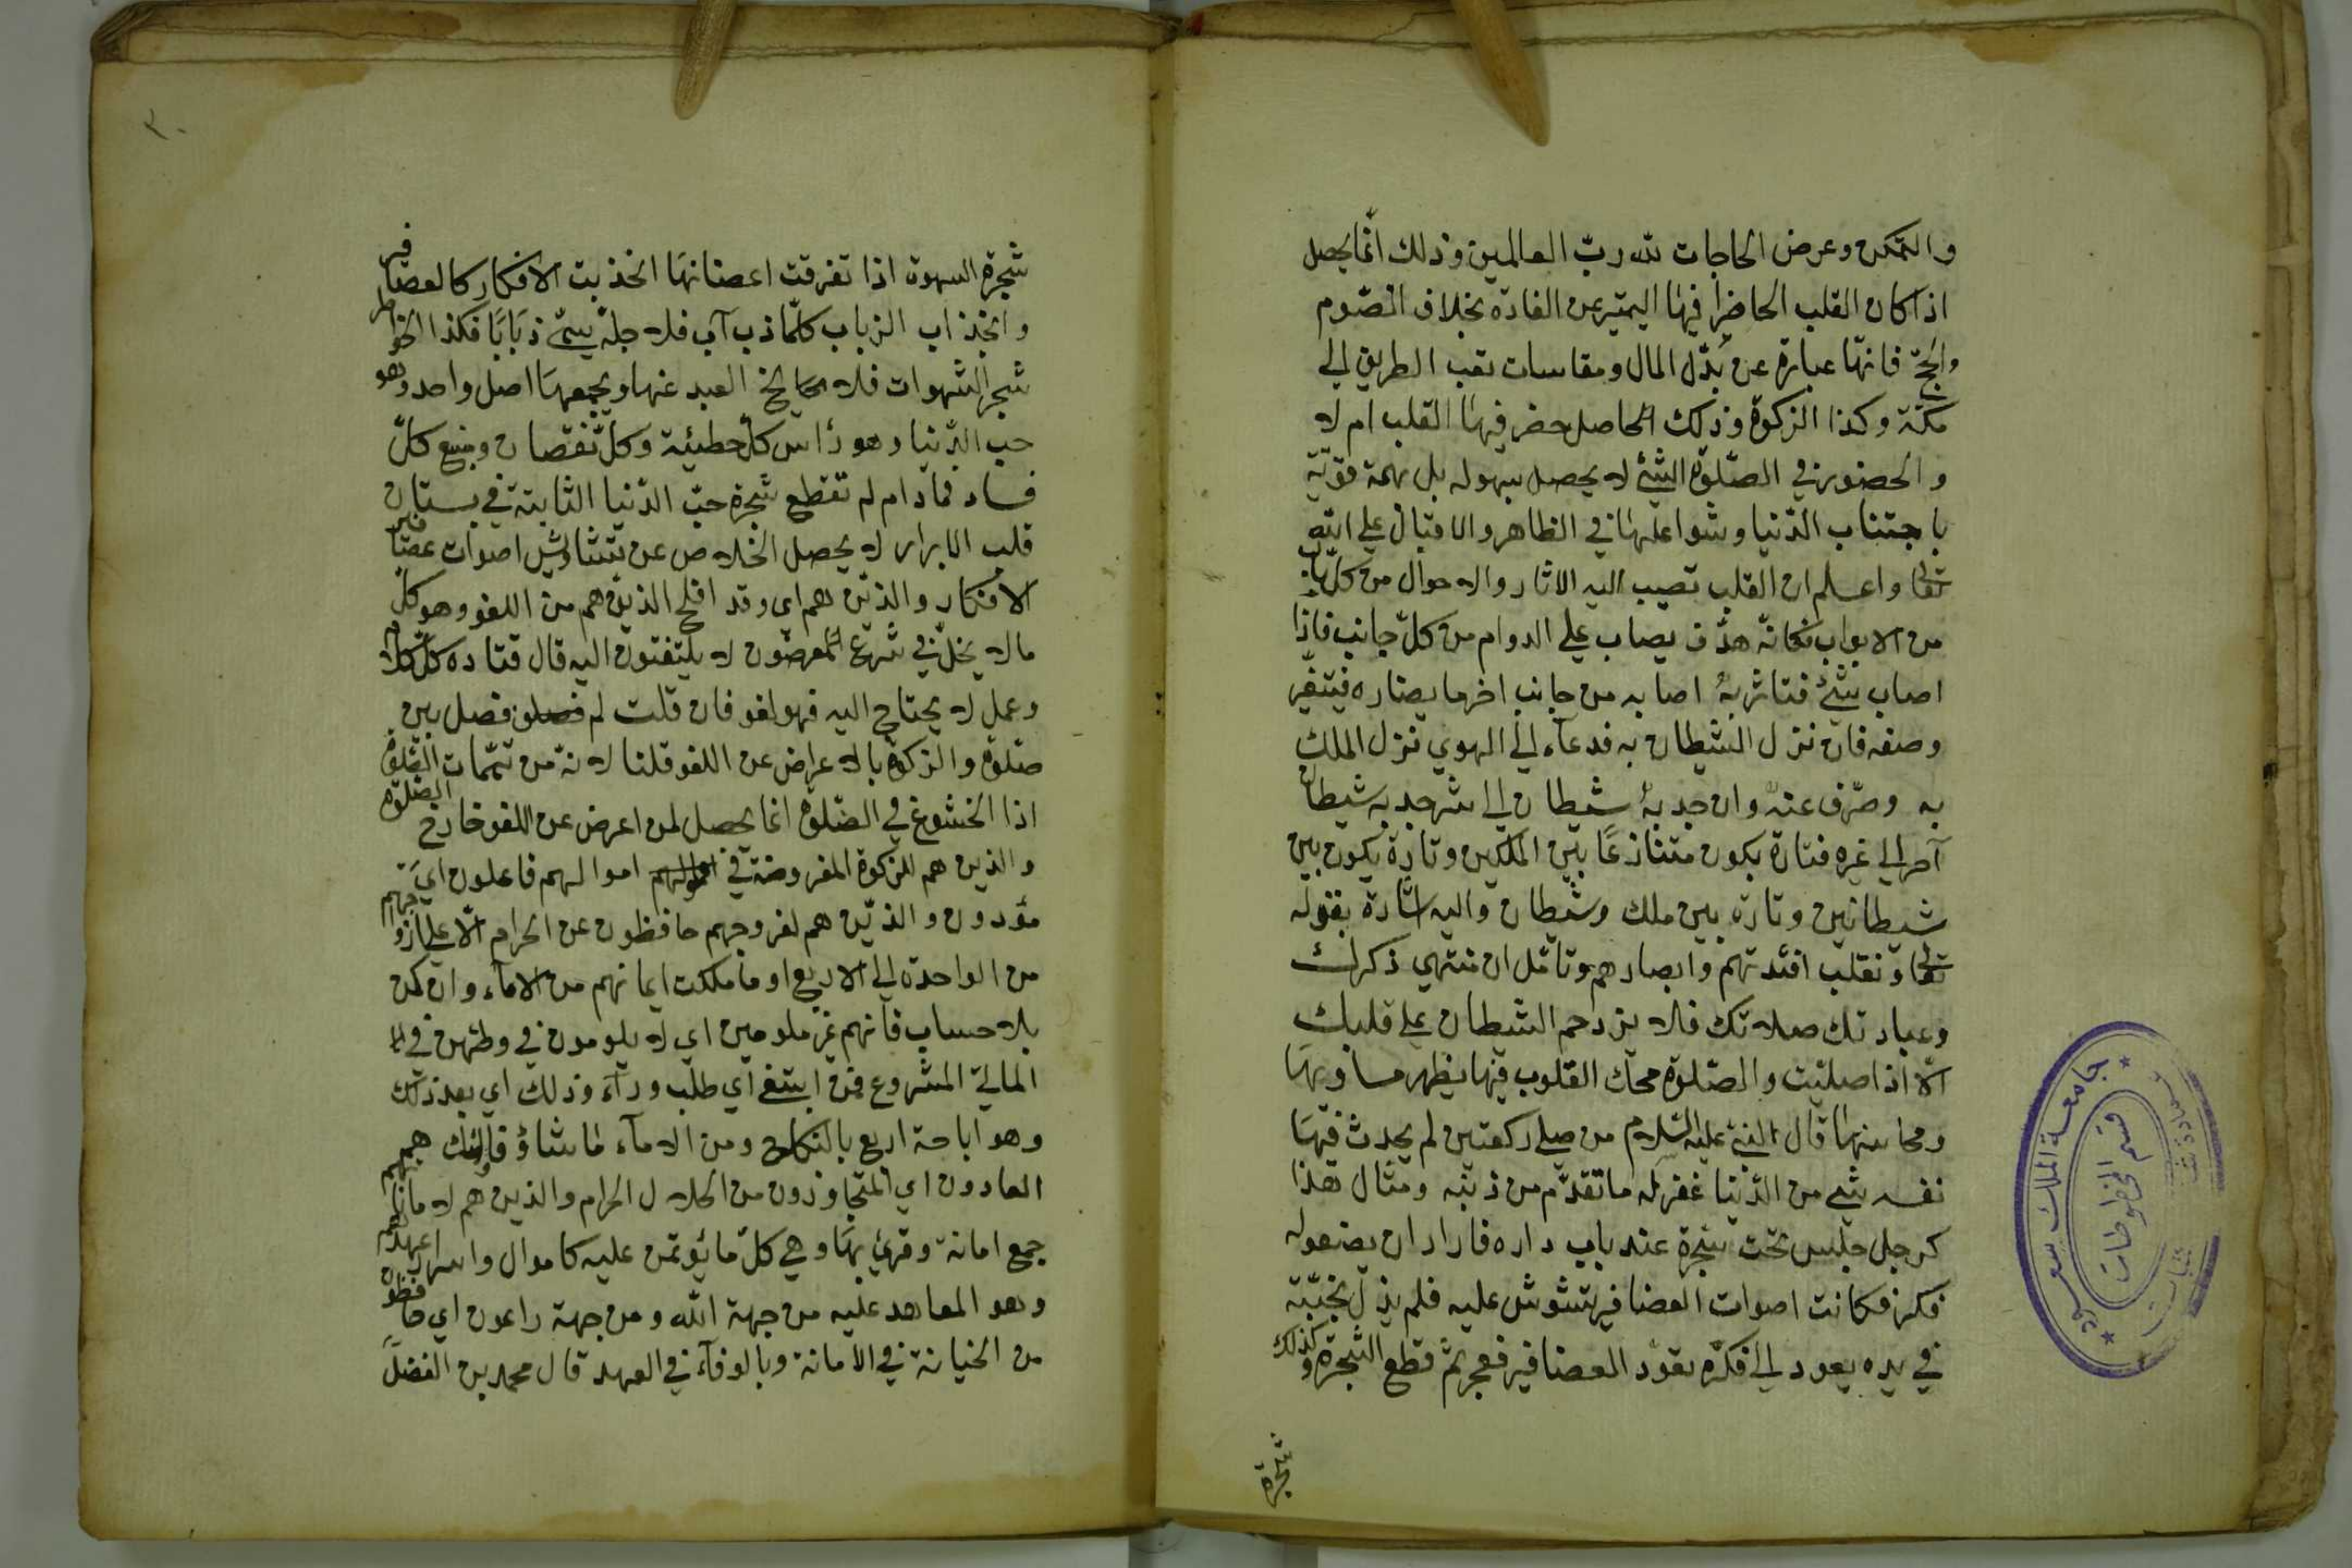 والتمكن وعرض الحاجات لله ربّ العالمين وذلك انّما يحصل
اذا كان القلب الحاضرا فيها اليتميز عن العادة بخلاف الصّوم
والحجّ فانّها عبارة عن بذل المال ومقاسات تعب الطريق الى
مكّة وكذا الزكوة وذلك الحاصل حضر فيها القلب ام لا
والحضور في الصّلوة الشئ لا يحصل بسهوله بل بهمة قويّة
باجتناب الدّنيا وشواغلها في الظاهر والاقبال على الله
تعالى واعلم ان القلب تصيب اليه الاثار والاحوال من كلّ باب
من الابواب فكانّه هدف يصاب على الدوام من كلّ جانب فاذا
اصاب بشئ فتاثر به اصابه من جانب اخر ما يضاره فيتغيّر
وصفه فان نزل الشيطان به فدعآء الى الهوي نزل الملك
به وصرّف عنه وان جدبه شيطان الى شر جدبه شيطان
آخر الى غيره فتارة يكون متنازعًا بين الملكين وتارة يكون بين
شيطانين وتارة بين ملك وشيطان واليه اشارة بقوله
تعالى ونقلب افئدتهم وابصارهم وتامّل ان منتهي ذكرك
وعبادتك صلاتك فلا يزدحم الشيطان على قلبك
الّا اذا صليت والصّلوة محكّ القلوب فيها يظهر مساويها
ومحاسنها قال النبيّ عليه السّلام من صلى ركعتين لم يحدث فيها
نفسه بشي من الدّنيا غفر له ما تقدّم من ذنبه ومثال هذا
كرجل جلس تحت شجرة عند باب داره فاراد ان يصفو له
فكره فكانت اصوات العصافير يشوش عليه فلم يزل بخشبة
في يده يعود الى فكره يعود العصافير فعجر ثمّ قطع الشجرة وكذلك
شجرة
شجرة السهوة اذا تفرقت اغصانها انخذبت الافكار كالعصافير
وانخذاب الزباب كلّما ذب آب فلاجله يسمّى ذبابًا فكذا الخواطر
شجر الشهوات فلا يخ العبد عنها ويجمعها اصل واحد وهو
حب الدّنيا وهو رأس كلّ خطيئة وكلّ نقصان ومنبع كلّ
فساد فما دام لم تقطع شجرة حبّ الدّنيا الثابتة في بستان
قلب الابرار لا يحصل الخلاص عن تشاوش اصوات عصافير
الافكار والذين هم اي وقد افلح الذين هم من اللغو وهو كلّ
مالا يخلّ في شرع معرضون لا يلتفتون اليه قال قتاده كلّ كلام
وعمل لا يحتاج اليه فهو لغو فان قلت لم فصل بين
صلوة والزكوة بالاعراض عن اللغو قلنا لانه من تتمّات الصّلوة
اذا الخشوع في الصّلوة انما يحصل لمن اعرض عن اللغو خارج الصّلوة
والذين هم للزكوة المفروضة في اموالهم فاعلون اي
مؤدون والذين هم لفروجهم حافظون عن الحرام الّا على ازواجهم
من الواحدة الى الاربع او ما ملكت ايمانهم من الامآء وان كن
بلا حساب فانهم غير ملومين اي لا يلومون في وطئهن في
المالى المشروع فمن ابتغى اي طلب ورآء ذلك اي بعد ذلك
وهو اباحة اربع بالنكاح ومن الامآء لما شاؤ فاولئك هم
العادون اي المتجاوزون من الحلال الى الحرام والذين هم لاماناتهم
جمع امانة وقرئ بها وهي كلّ ما يؤتمن عليه كاموال واسرار وعهدهم
وهو المعاهد عليه من جهة اللّه ومن جهة راعون اي حافظون
من الخيانة في الامانة وبالوفآء في العهد قال محمد بن الفضل
جامعة الملك سعود
قسم المخطوطات